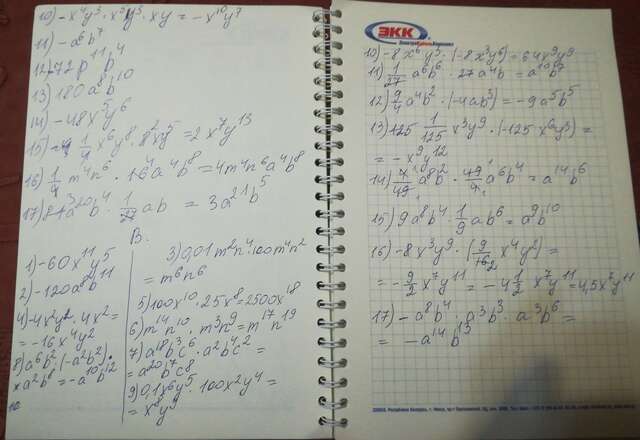 10) -x⁴y³ · x⁵y³ · xy = -x¹⁰y⁷
11) -a⁶b⁷
12) -72p¹¹b⁴
13) 180a⁸b¹⁰
14) -48x⁵y⁶
15) 1/4 x⁶y⁸ · 8²xy⁵ = 2x⁷y¹³
16) 1/4 m⁴n⁶ · 16⁴a⁴b⁸ = 4m⁴n⁶a⁴b⁸
17) 81a²⁰b⁴ · 1/27 ab = 3a²¹b⁵
B.
1) -60x¹¹y⁵
2) -120a⁸b¹¹
4) -4x²y² · 4x² =
= -16x⁴y²
8) a⁶b²·(-a²b²)·
×a²b⁸ = -a¹⁰b¹²
3) 0,01m²n⁴·100m⁴n²
= m⁶n⁶
5) 100x¹⁰ · 25x⁸ = 2500x¹⁸
6) m¹⁴n¹⁰ · m³n⁹ = m¹⁷n¹⁹
7) a¹⁸b³c⁶ · a²b⁴c² =
= a²⁰b⁷c⁸
9) 0,1x⁶y⁵ · 100x²y⁴ =
= x⁸y⁹
ЭКК
ЭлектроКабельКомплект
10) -8x⁶y³ · (-8x³y⁶) = 64x⁹y⁹
11) 1/27 a⁶b⁶ · 27a⁴b = a¹⁰b⁷
12) 9/4 a⁴b² · (-4ab³) = -9a⁵b⁵
13) 125 1/125 x³y⁹ · (-125x⁶y³) =
= -x⁹y¹²
14) 4/49 a⁸b² · 49/4 a⁶b⁴ = a¹⁴b⁶
15) 9a⁸b⁴ · 1/9 ab⁶ = a⁹b¹⁰
16) -8x³y⁹ · (9/16 x⁴y²) =
= -9/2 x⁷y¹¹ = -4 1/2 x⁷y¹¹ = 4,5x⁷y¹¹
17) -a⁸b⁴ · a³b³ · a³b⁶ =
= -a¹⁴b¹³